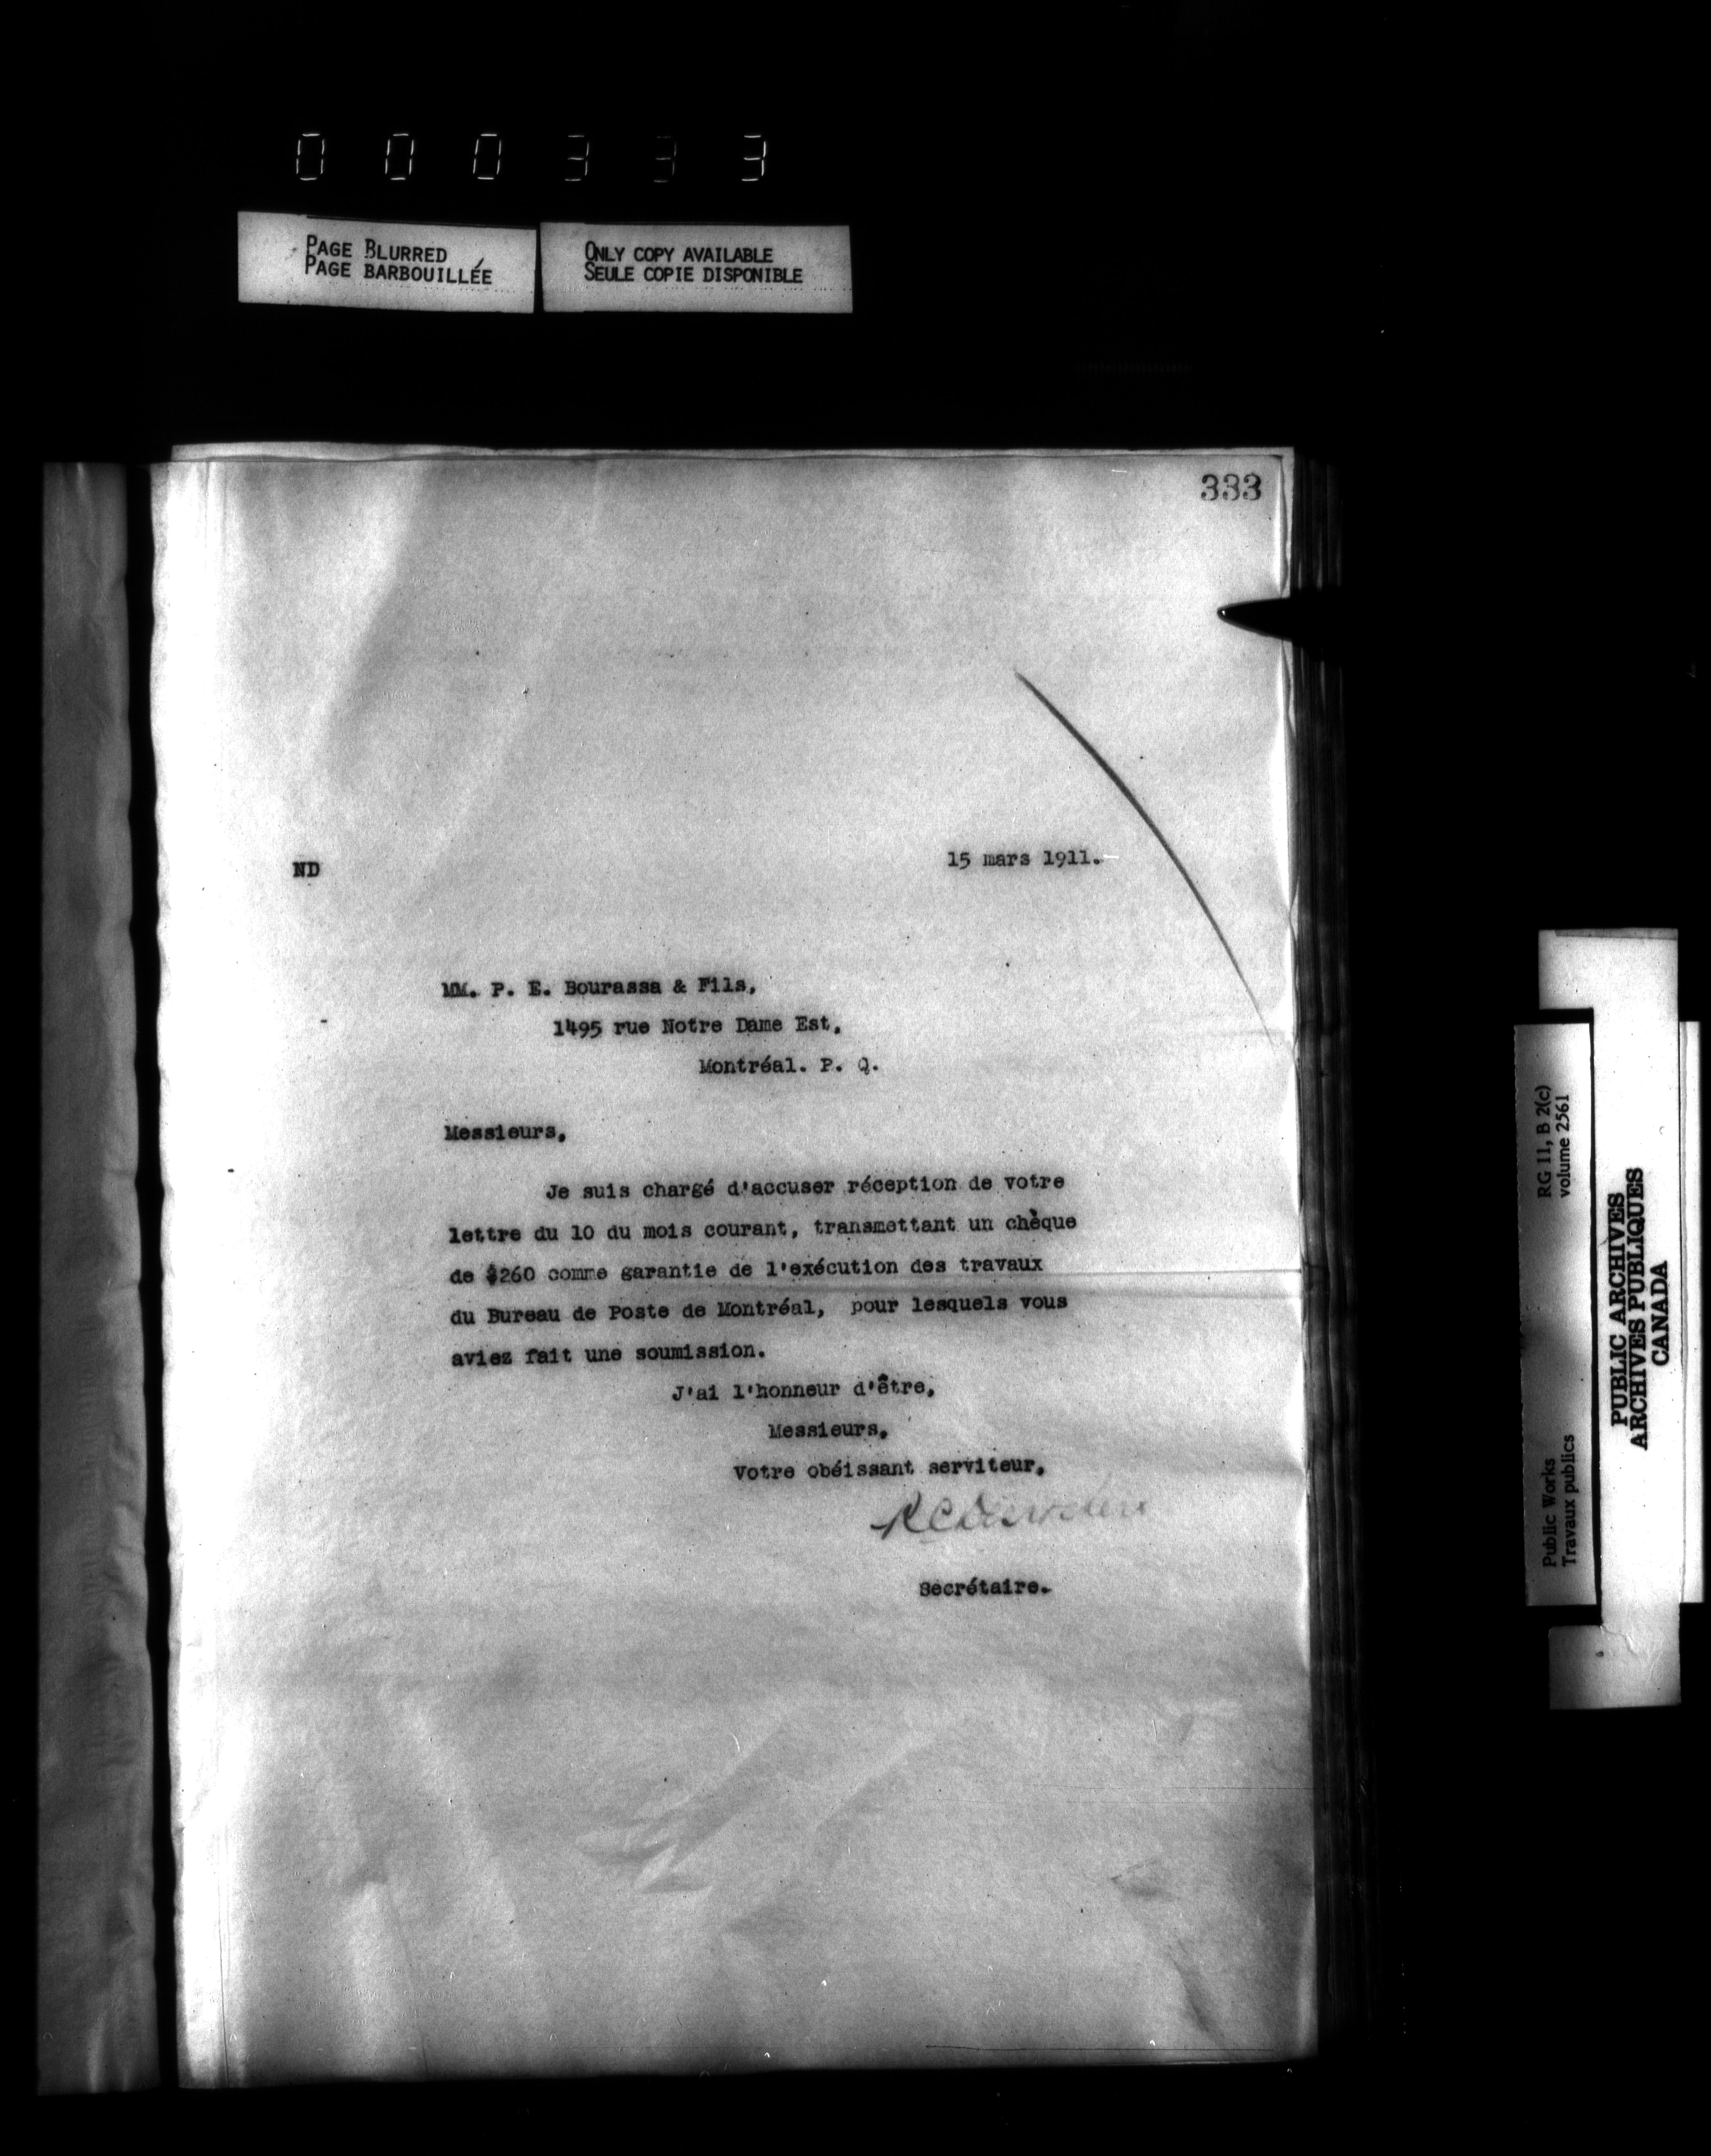 000333
PAGE BLURRED
PAGE BARBOUILLÉE
ONLY COPY AVAILABLE
SEULE COPIE DISPONIBLE
333
ND
15 mars 1911.
MM. P. E. Bourassa & Fils,
1495 rue Notre Dame Est,
Montréal. P. Q.
Messieurs,
Je suis chargé d'accuser réception de votre
lettre du 10 du mois courant, transmettant un chèque
de $260 comme garantie de l'exécution des travaux
du Bureau de Poste de Montréal, pour lesquels vous
aviez fait une soumission.
J'ai l'honneur d'être,
Messieurs,
Votre obéissant serviteur,
Secrétaire.
RG 11, B 2(c)
volume 2561
Public Works
Travaux publics
PUBLIC ARCHIVES
ARCHIVES PUBLIQUES
CANADA